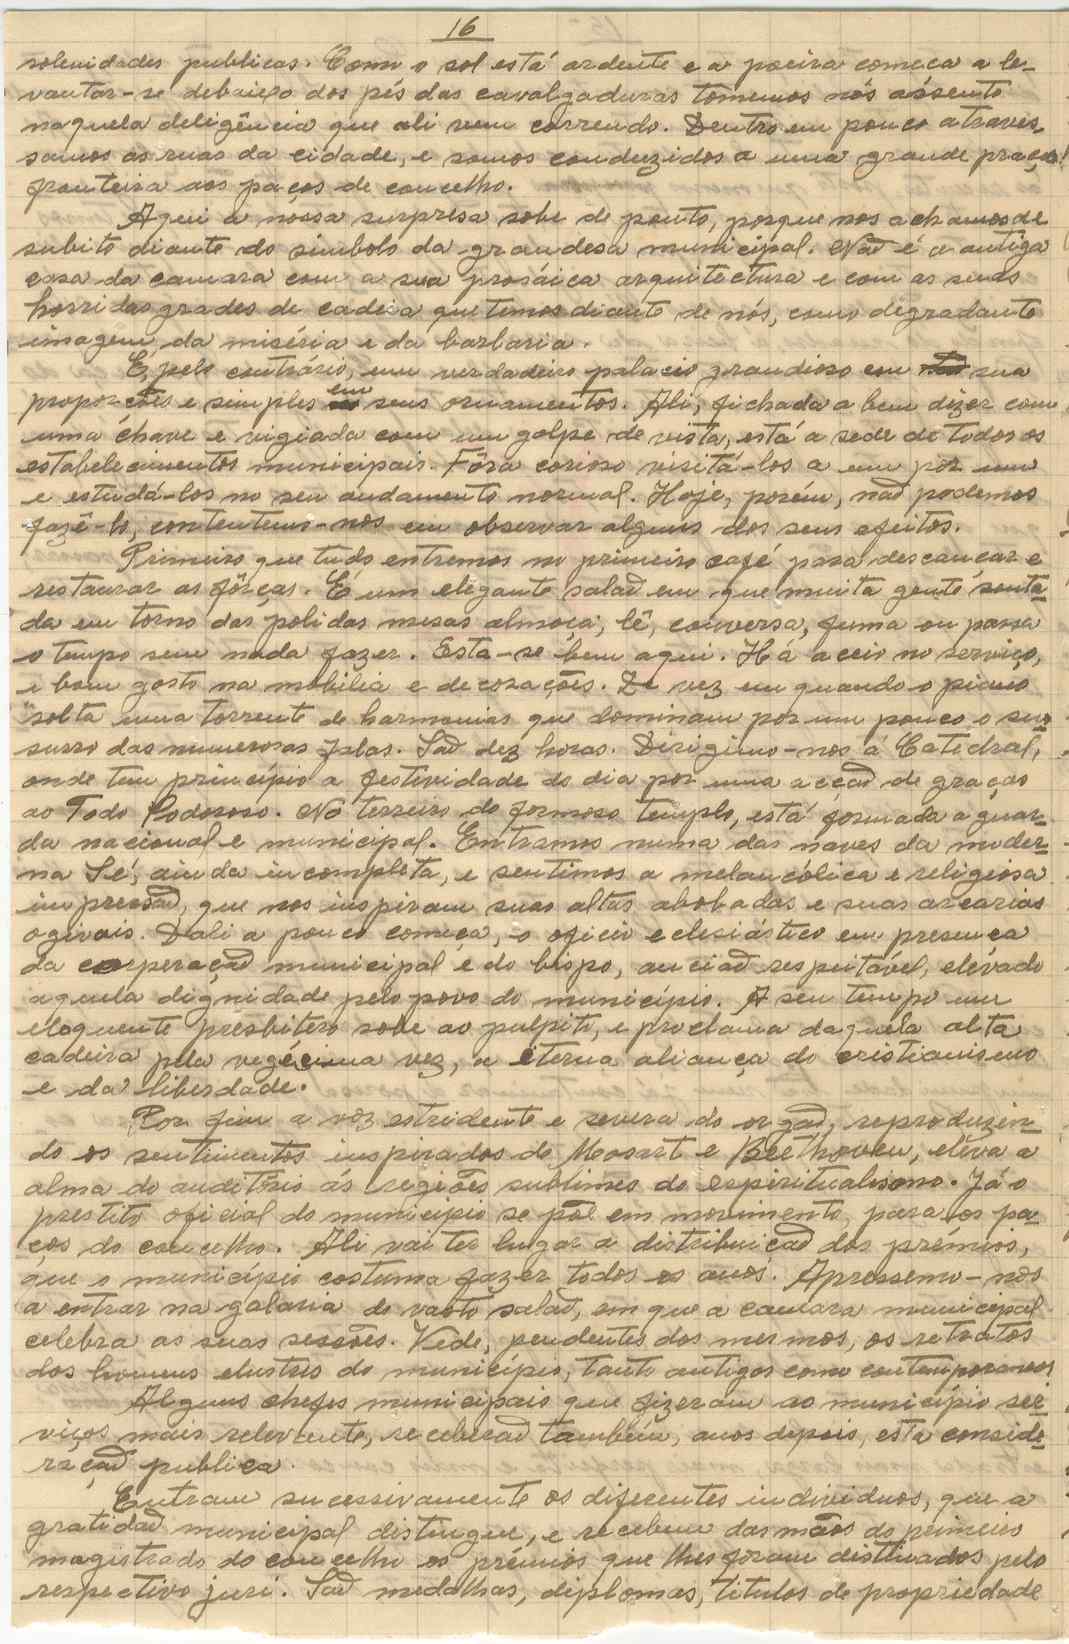 16
solenidades publicas. Como o sol está ardente e a poeira começa a le-
vantar-se debaixo dos pés das cavalgaduras tomemos nós assento
naquela deligência que ali vem correndo. Dentro em pouco atraves-
samos as ruas da cidade, e somos conduzidos a uma grande praça
fronteira aos paços de concelho.
Aqui a nossa surpresa sobe de ponto, porque nos achamos de
subito diante do simbolo da grandesa municipal. Não é a antiga
casa da camara com a sua prosáica arquitectura e com as suas
horridas grades de cadeia que temos diante de nós, como degradante
imagem da miséria e da barbaria.
É, pelo contrário, um verdadeiro palacio grandioso em sua
proporções e simples em seus ornamentos. Ali, fichada a bem dizer com
uma chave e vigiada com um golpe de vista, está a sede de todos os
estabelecimentos municipais. Fôra corioso visitá-los a um por um
e estudá-los no seu andamento normal. Hoje, porém, não podemos
fazê-lo, contentemo-nos em observar alguns dos seus efeitos.
Primeiro que tudo entremos no primeiro café para descançar e
restaurar as fôrças. É um elegante salão em que muita gente senta-
da em torno das polidas mesas almoça, lê, conversa, fuma ou passa
o tempo sem nada fazer. Esta-se bem aqui. Há aceio no serviço,
e bom gosto na mobilia e decorações. De vez em quando o piano
solta uma torrente de harmonias que dominam por um pouco o sus-
surro das numerosas falas. São dez horas. Dirigimo-nos á Catedral,
onde tem princípio a festividade do dia por uma acção de graças
ao Todo Poderoso. No terreiro do formoso templo, está formada a guar-
da nacional e municipal. Entramos numa das naves da moder-
na Sé, ainda incompleta, e sentimos a melancólica e religiosa
impressão, que nos inspiram suas altas abobadas e suas arcarias
ogivais. Dali a pouco começa, o oficio eclesiástico em presença
da corperação municipal e do bispo, ancião respeitável, elevado
aquela dignidade pelo povo do município. A seu tempo um
eloquente presbitero sobe ao pulpito, e proclama daquela alta
cadeira pela vegécima vez, a eterna aliança do cristianismo
e da liberdade.
Por fim a vóz estridente e severa do orgão, reproduzin-
do os sentimentos inspirados de Mosart e Beethoven, eleva a
alma do auditório ás regiões sublimes do espiritualismo. Já o
prestito oficial do municipio se põe em movimento, para os pa-
ços do concelho. Ali vai ter lugar a distribuição dos prémios,
que o município costuma fazer todos os anos. Apressemo-nos
a entrar na galaria do vasto salão, em que a camara municipal
celebra as suas sessões. Vêde, pendentes dos mermos, os retratos
dos homens elustres do município, tanto antigos como contemporaneos
Alguns chefes municipais que fizeram ao município ser-
viços mais relevante, receberão tambêm, anos depois, esta conside-
ração publica.
Entram sucessivamente os diferentes individuos, que a
gratidão municipal distingue, e recebem das mãos do primeiro
magistrado do concelho os prémios que lhes foram destinados pelo
respectivo juri. São medalhas, diplomas, titulos de propriedade